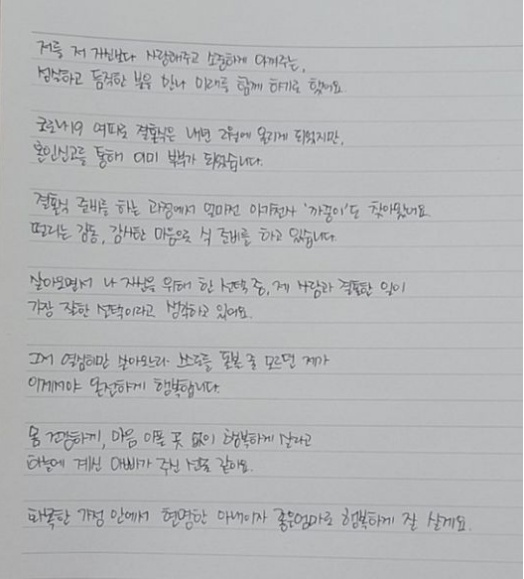 저를 저 자신보다 사랑해주고 소중하게 다뤄주는,
성실하고 듬직한 분을 만나 미래를 함께 하기로 했어요.
코로나19 여파로 결혼식은 내년 2월에 올리게 되었지만,
혼인신고를 통해 이미 부부가 되었습니다.
결혼식 준비를 하는 과정에서 얼마전 아기천사 '까꿍이'도 찾아왔어요.
떨리는 감동, 감사한 마음으로 식 준비를 하고 있습니다.
살아오면서 나 자신을 위해 한 선택 중, 제 사람과 결혼한 일이
가장 잘한 선택이라고 생각하고 있어요.
그저 열심히만 살아오느라 스스로를 돌볼 줄 모르던 제가
이제서야 온전하게 행복합니다.
몸 건강하게, 마음 아플 곳 없이 행복하게 살라고
하늘에 계신 아빠가 주신 선물 같아요.
화목한 가정 안에서 현명한 아내이자 좋은엄마로 행복하게 잘 살게요.